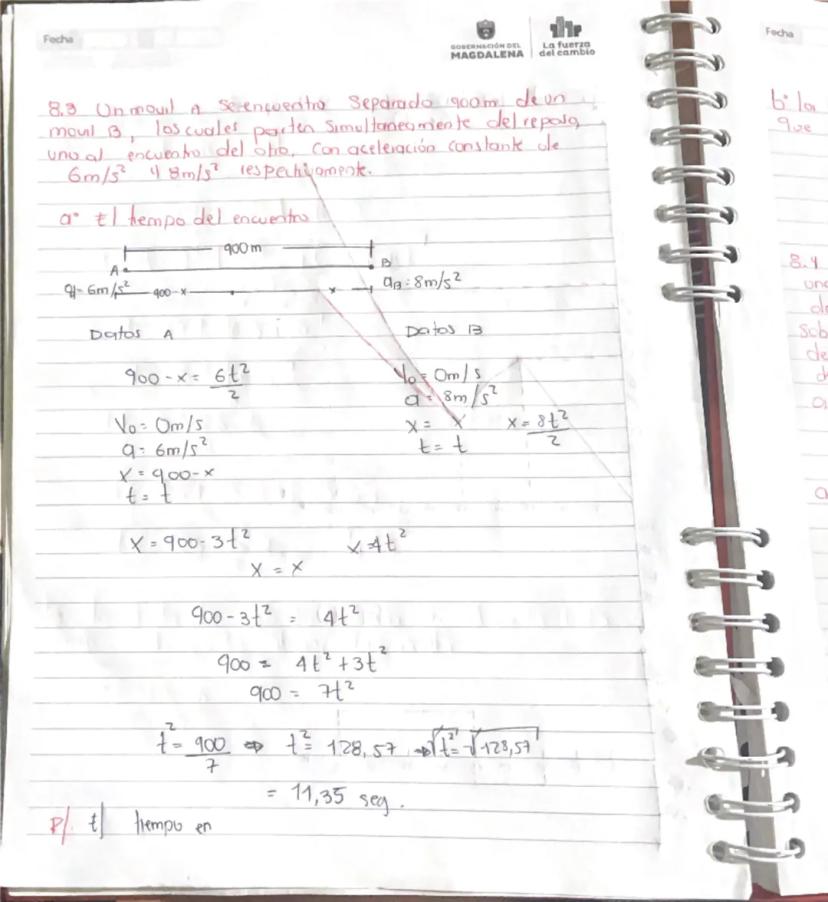 Fecha
GOBERNACIÓN DEL
MAGDALENA
La fuerza
del cambio
8.3 Un movil A se encuentra separado 900m de un
movil B, los cuales parten simultaneamiente del reposo,
uno al encuentro del otro, con aceleración constante de
6m/s² y 8m/s² respectivamente.
a° El tiempo del encuentro
900m
A B
a= 6m/s² 900-x x aB = 8m/s²
Datos A Datos B
900 - x = 6t²/2
V₀ = 0m/s
a = 8m/s²
x = x x = 8t²/2
t = t
V₀ = 0m/s
a = 6m/s²
x = 900-x
t = t
x = 900-3t² x=4t²
x = x
900 - 3t² = 4t²
900 = 4t² + 3t²
900 = 7t²
t² = 900/7 ⇒ t² = 128,57 ⇒ √t² = √128,57
= 11,35 seg.
R/. t/ tiempo en
Fecha
b° la
que
8.4
una
sob
de